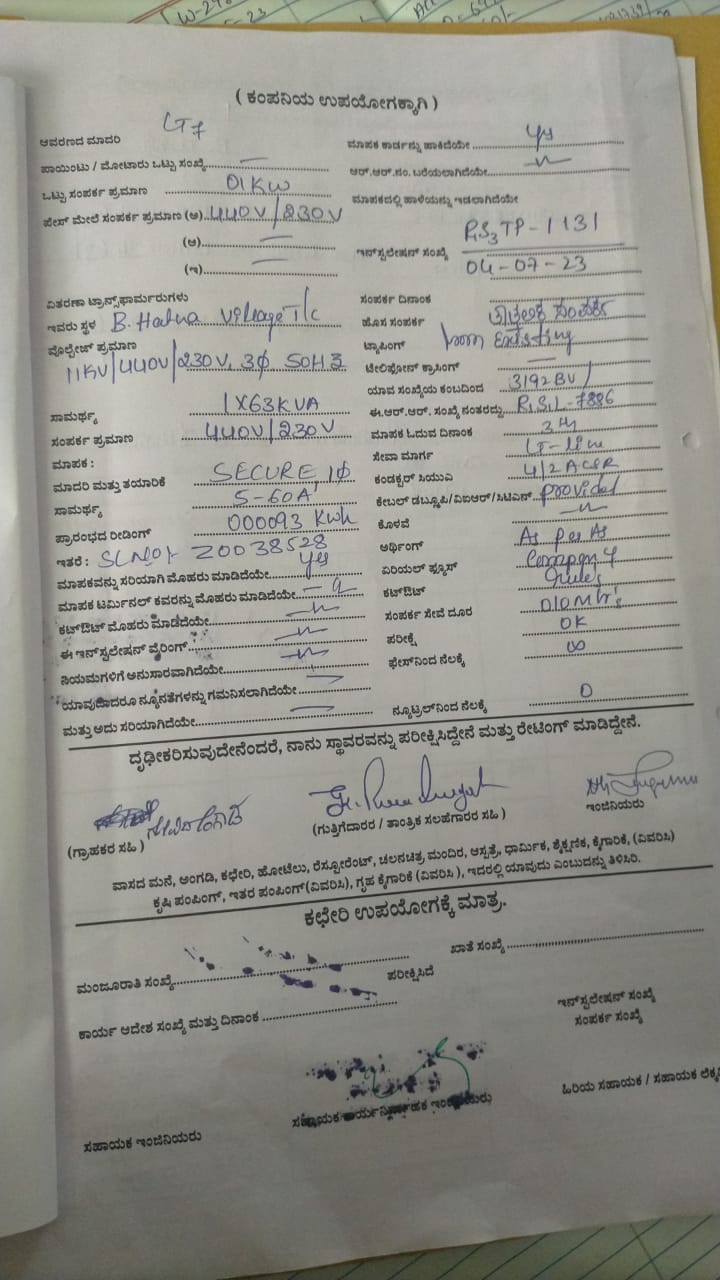 ( ಕಂಪನಿಯ ಉಪಯೋಗಕ್ಕಾಗಿ )
ಆವರಣದ ಮಾದರಿ LT7
ಪಾಯಿಂಟು / ಮೋಟಾರು ಒಟ್ಟು ಸಂಖ್ಯೆ
ಒಟ್ಟು ಸಂಪರ್ಕ ಪ್ರಮಾಣ 01KW
ಫೇಸ್ ಮೇಲೆ ಸಂಪರ್ಕ ಪ್ರಮಾಣ (ಅ) 440V/230V
(ಆ)
(ಇ)
ವಿತರಣಾ ಟ್ರಾನ್ಸ್‌ಫಾರ್ಮರುಗಳು
ಇವರು ಸ್ಥಳ B. Halna Village T/c
ವೊಲ್ಟೇಜ್ ಪ್ರಮಾಣ
11KV/440V/230V, 3Φ 50HZ
ಸಾಮರ್ಥ್ಯ 1X63KVA
ಸಂಪರ್ಕ ಪ್ರಮಾಣ 440V/230V
ಮಾಪಕ :
ಮಾದರಿ ಮತ್ತು ತಯಾರಿಕೆ SECURE, 1Φ
ಸಾಮರ್ಥ್ಯ 5-60A
ಪ್ರಾರಂಭದ ರೀಡಿಂಗ್ 000093 Kwh
ಇತರೆ : SLNO:- Z0038528
ಮಾಪಕವನ್ನು ಸರಿಯಾಗಿ ಮೊಹರು ಮಾಡಿದೆಯೇ yes
ಮಾಪಕ ಟರ್ಮಿನಲ್ ಕವರನ್ನು ಮೊಹರು ಮಾಡಿದೆಯೇ
ಕಟ್‌ಔಟ್ ಮೊಹರು ಮಾಡಿದೆಯೇ
ಈ ಇನ್‌ಸ್ಟಲೇಷನ್ ವೈರಿಂಗ್
ನಿಯಮಗಳಿಗೆ ಅನುಸಾರವಾಗಿದೆಯೇ
ಯಾವುದಾದರೂ ನ್ಯೂನತೆಗಳನ್ನು ಗಮನಿಸಲಾಗಿದೆಯೇ
ಮತ್ತು ಅದು ಸರಿಯಾಗಿದೆಯೇ
ಮಾಪಕ ಕಾರ್ಡನ್ನು ಹಾಕಿದೆಯೇ yes
ಆರ್.ಆರ್.ನಂ. ಬರೆಯಲಾಗಿದೆಯೇ
ಮಾಪಕದಲ್ಲಿ ಹಾಳೆಯನ್ನು ಇಡಲಾಗಿದೆಯೇ
ಇನ್‌ಸ್ಟಲೇಷನ್ ಸಂಖ್ಯೆ RS3TP-1131
04-07-23
ಸಂಪರ್ಕ ದಿನಾಂಕ
ಹೊಸ ಸಂಪರ್ಕ
ಟ್ಯಾಪಿಂಗ್ from Existing
ಟೆಲಿಫೋನ್ ಕ್ರಾಸಿಂಗ್
ಯಾವ ಸಂಖ್ಯೆಯ ಕಂಬದಿಂದ 3192BV/
ಈ.ಆರ್.ಆರ್. ಸಂಖ್ಯೆ ನಂತರದ್ದು RSL-7886
ಮಾಪಕ ಓದುವ ದಿನಾಂಕ
ಸೇವಾ ಮಾರ್ಗ LT-line
ಕಂಡಕ್ಟರ್ ಸಿಯುವಿ 4/2 ACSR
ಕೇಬಲ್ ಡಬ್ಲ್ಯೂಪಿ/ವಿಐಆರ್/ಸಿಟಿಎಸ್ provided
ಕೊಳವೆ
ಅರ್ಥಿಂಗ್ As per As
ಏರಿಯಲ್ ಫ್ಯೂಸ್ Company
ಕಟ್‌ಔಟ್ rules
ಸಂಪರ್ಕ ಸೇವೆ ದೂರ 010Mtr's
ಪರೀಕ್ಷೆ OK
ಫೇಸ್‌ನಿಂದ ನೆಲಕ್ಕೆ ∞
ನ್ಯೂಟ್ರಲ್‌ನಿಂದ ನೆಲಕ್ಕೆ 0
ದೃಢೀಕರಿಸುವುದೇನೆಂದರೆ, ನಾನು ಸ್ಥಾವರವನ್ನು ಪರೀಕ್ಷಿಸಿದ್ದೇನೆ ಮತ್ತು ರೇಟಿಂಗ್ ಮಾಡಿದ್ದೇನೆ.
(ಗ್ರಾಹಕರ ಸಹಿ )
(ಗುತ್ತಿಗೆದಾರರ / ತಾಂತ್ರಿಕ ಸಲಹೆಗಾರರ ಸಹಿ )
ಇಂಜಿನಿಯರು
ವಾಸದ ಮನೆ, ಅಂಗಡಿ, ಕಛೇರಿ, ಹೋಟೆಲು, ರೆಸ್ಟೋರೆಂಟ್, ಚಲನಚಿತ್ರ ಮಂದಿರ, ಆಸ್ಪತ್ರೆ, ಧಾರ್ಮಿಕ, ಶೈಕ್ಷಣಿಕ, ಕೈಗಾರಿಕೆ, (ವಿವರಿಸಿ)
ಕೃಷಿ ಪಂಪಿಂಗ್, ಇತರ ಪಂಪಿಂಗ್(ವಿವರಿಸಿ), ಗೃಹ ಕೈಗಾರಿಕೆ (ವಿವರಿಸಿ ), ಇದರಲ್ಲಿ ಯಾವುದು ಎಂಬುದನ್ನು ತಿಳಿಸಿರಿ.
ಕಛೇರಿ ಉಪಯೋಗಕ್ಕೆ ಮಾತ್ರ.
ಮಂಜೂರಾತಿ ಸಂಖ್ಯೆ ಪರೀಕ್ಷಿಸಿದೆ
ಖಾತೆ ಸಂಖ್ಯೆ
ಕಾರ್ಯ ಆದೇಶ ಸಂಖ್ಯೆ ಮತ್ತು ದಿನಾಂಕ
ಇನ್‌ಸ್ಟಲೇಷನ್ ಸಂಖ್ಯೆ
ಸಂಪರ್ಕ ಸಂಖ್ಯೆ
ಸಹಾಯಕ ಇಂಜಿನಿಯರು
ಸಹಾಯಕ ಕಾರ್ಯನಿರ್ವಾಹಕ ಇಂಜಿನಿಯರು
ಹಿರಿಯ ಸಹಾಯಕ / ಸಹಾಯಕ